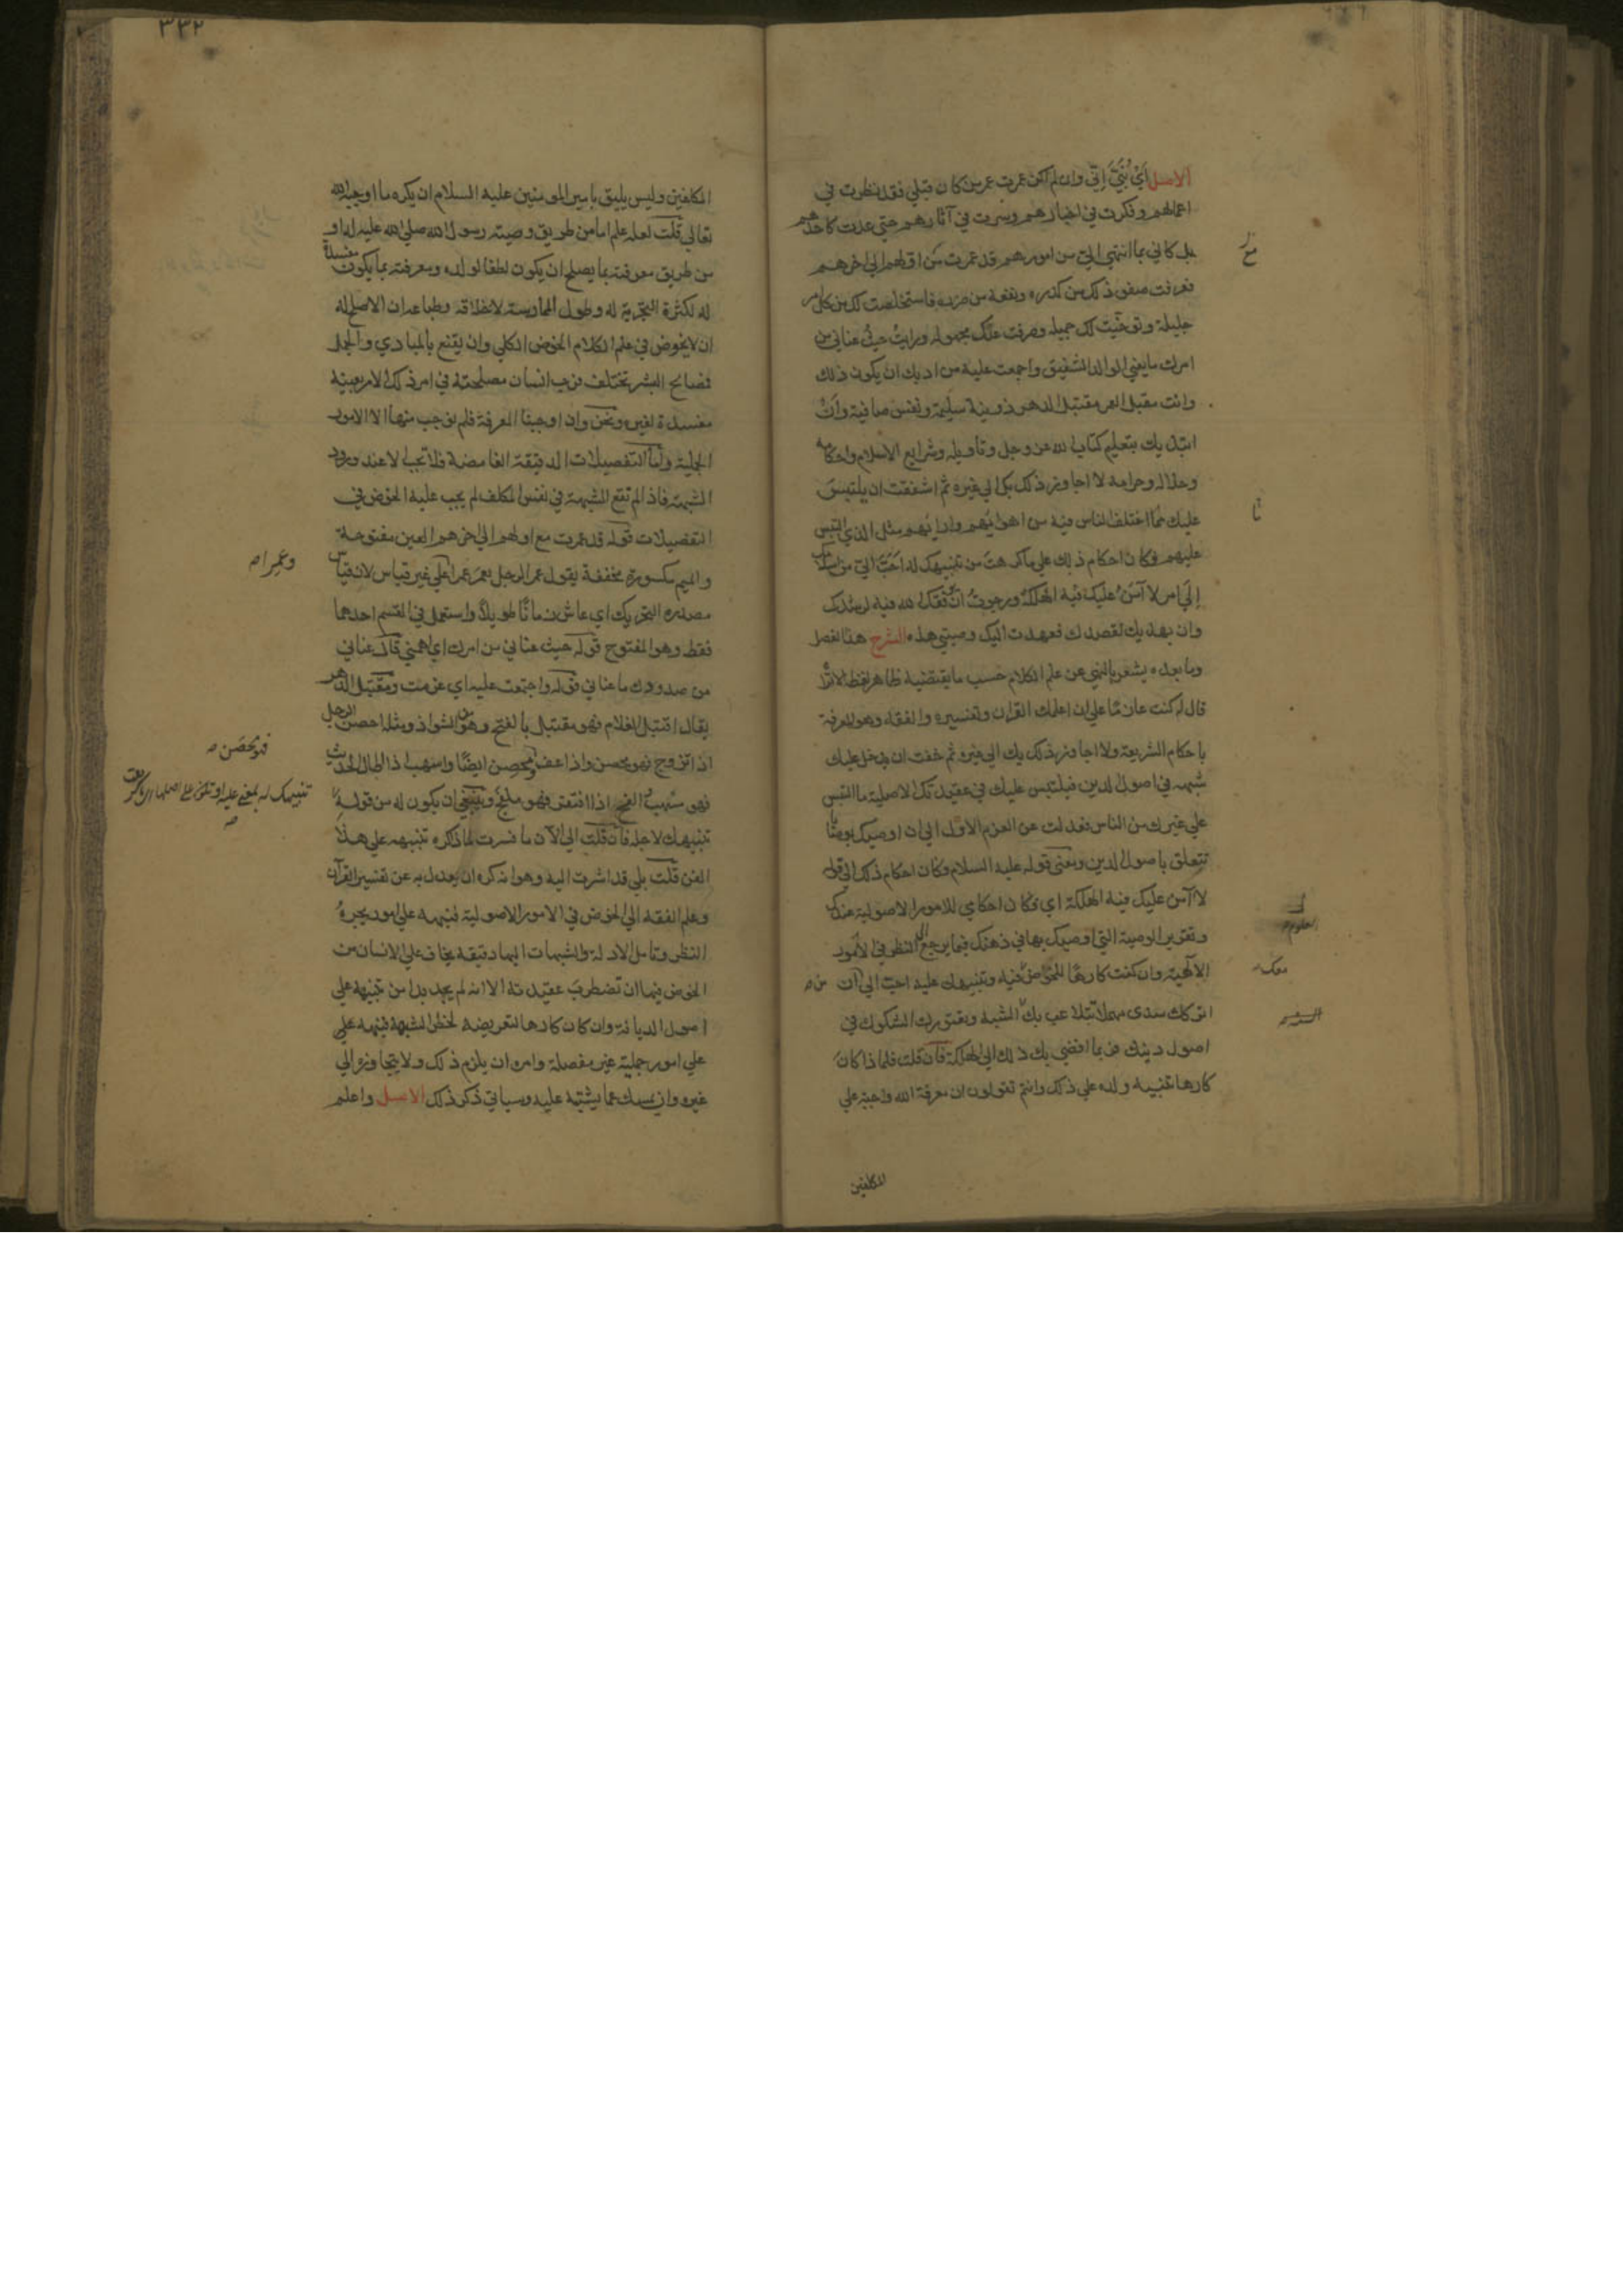 الاصل اَيْ بُنَيَّ اِنِّي وان لم اكن عمرت عمر من كان قبلي فقد نظرت في
اعمالهم وفكرت في اخبارهم وسرت في آثارهم حتي عدت كاحدهم
بل كاني بما انتهي الي من امورهم قد عمرت مع اولهم الي اخرهم
فعرفت صفو ذلك من كدره ونفعه من ضرره فاستخلصت لك من كل امر
جليله وتوخيت لك جميله وصرفت عنك مجهوله ورايت حيث عناني من
امرك ما يعني الوالد الشفيق واجمعت عليه من ادبك ان يكون ذلك
وانت مقبل العمر مقتبل الدهر ذو نية سليمة ونفس صافية وان
ابتديك بتعليم كتاب الله عز وجل وتاويله وشرايع الاسلام واحكامه
وحلاله وحرامه لا اجاوز ذلك بك الي غيره ثم اشفقت ان يلتبس
عليك ما اختلف الناس فيه من اهوائهم وارائهم مثل الذي التبس
عليهم فكان احكام ذلك علي ما كرهت من تنبيهك له احب الي من اسلامك
الي امر لا آمن عليك فيه الهلكة ورجوت ان يوفقك الله فيه لرشدك
وان يهديك لقصدك فعهدت اليك وصيتي هذه الشرح هذا الفصل
وما بعده يشعر بالنهي عن علم الكلام حسب ما يقتضيه ظاهر لفظه الا تراه
قال له كنت عازمًا علي ان اعلمك القرآن وتفسيره والفقه وهو المعرفة
باحكام الشريعة ولا اجاوز ذلك بك الي غيره ثم خفت ان يدخل عليك
شبهه في اصول الدين فيلتبس عليك في عقيدتك الاصلية ما التبس
علي غيرك من الناس فعدلت عن العزم الاول الي ان اوصيك بوصايا
تتعلق باصول الدين ومعني قوله عليه السلام وكان احكام ذلك الي قوله
لا آمن عليك فيه الهلكة اي فكان احكامي للامور الاصولية عندك
وتقرير الوصية التي اوصيك بها في ذهنك فيما يرجع الي النظر في الامور
الالهية وان كنت كارهًا للخوض فيه وتنبيهك عليه احب الي ان
اتركك سدى مهملا تتلاعب بك الشبه وتعتورك الشكوك في
اصول دينك فربما افضي بك ذلك الي الهلكة فان قلت فلماذا كان
كارها تنبيه ولده علي ذلك وانتم تقولون ان معرفة الله واجبة علي
المكلفين
٣٣٢
المكلفين وليس يليق بامير المومنين عليه السلام ان يكره ما اوجبه الله
تعالي قلت لعله علم اما من طريق وصية رسول الله صلي الله عليه له او
من طريق معرفته بما يصلح ان يكون لطفا لولده ومعرفته بما يكون مفسدة
له لكثرة التجربة له وطول الممارسة لاخلاقه وطباعه ان الاصلح له
ان لا يخوض في علم الكلام الخوض الكلي وان يقنع بالمبادي والجمل
فمصالح البشر تختلف فرب انسان مصلحته في امر ذلك الامر بعينه
مفسدة لغيره ونحن وان اوجبنا المعرفة فلم نوجب منها الا الامور
الجملية واما التفصيلات الدقيقة الغامضة فلا تجب الا عند ورود
الشبهة فاذا لم تقع الشبهة في نفس المكلف لم يجب عليه الخوض في
التفصيلات قوله قد عمرت مع اولهم الي اخرهم العين مفتوحة
والميم مكسورة مخففة يقول عمر الرجل يعمر عمرا علي غير قياس لان قياس
وعَمِرا صه
مصدره التحريك اي عاش زمانًا طويلًا واستعمل في القسم احدهما
فقط وهو المفتوح قوله حيث عناني من امرك اي اهمني قال عناني
من صدودك ما عناني قوله واجمعت عليه اي عزمت ومقتبل الدهر
يقال اقتبل الغلام فهو مقتبل بالفتح وهو من الشواذ ومثله احصن الرجل
اذا تزوج فهو محصن واذا عف فمحصن ايضًا واسهب اذا اطال الحديث
فهو مُسْهب والفج اذا افتقر فهو ملفج وينبغي ان يكون له من قوله
تنبيهك لا جله فان قلت الي الآن ما فسرت لماذا كره تنبيهه علي هذا
الفن قلت بلي قد اشرت اليه وهو انه كره ان يعدل به عن تفسير القرآن
وعلم الفقه الي الخوض في الامور الاصولية فنبهه علي امور يجره
النظر وتامل الادلة والشبهات اليها دقيقة يخاف علي الانسان من
الخوض فيها ان تضطرب عقيدته الا انه لم يجد بدا من تنبيهه علي
اصول الديانة وان كان كارها لتعريضه لخطر الشبهة فنبهه علي
علي امور جملية غير مفصلة وامره ان يلزم ذلك ولا يتجاوزه الي
غيره وان يمسك عما يشتبه عليه وسياتي ذكر ذلك الاصل واعلم